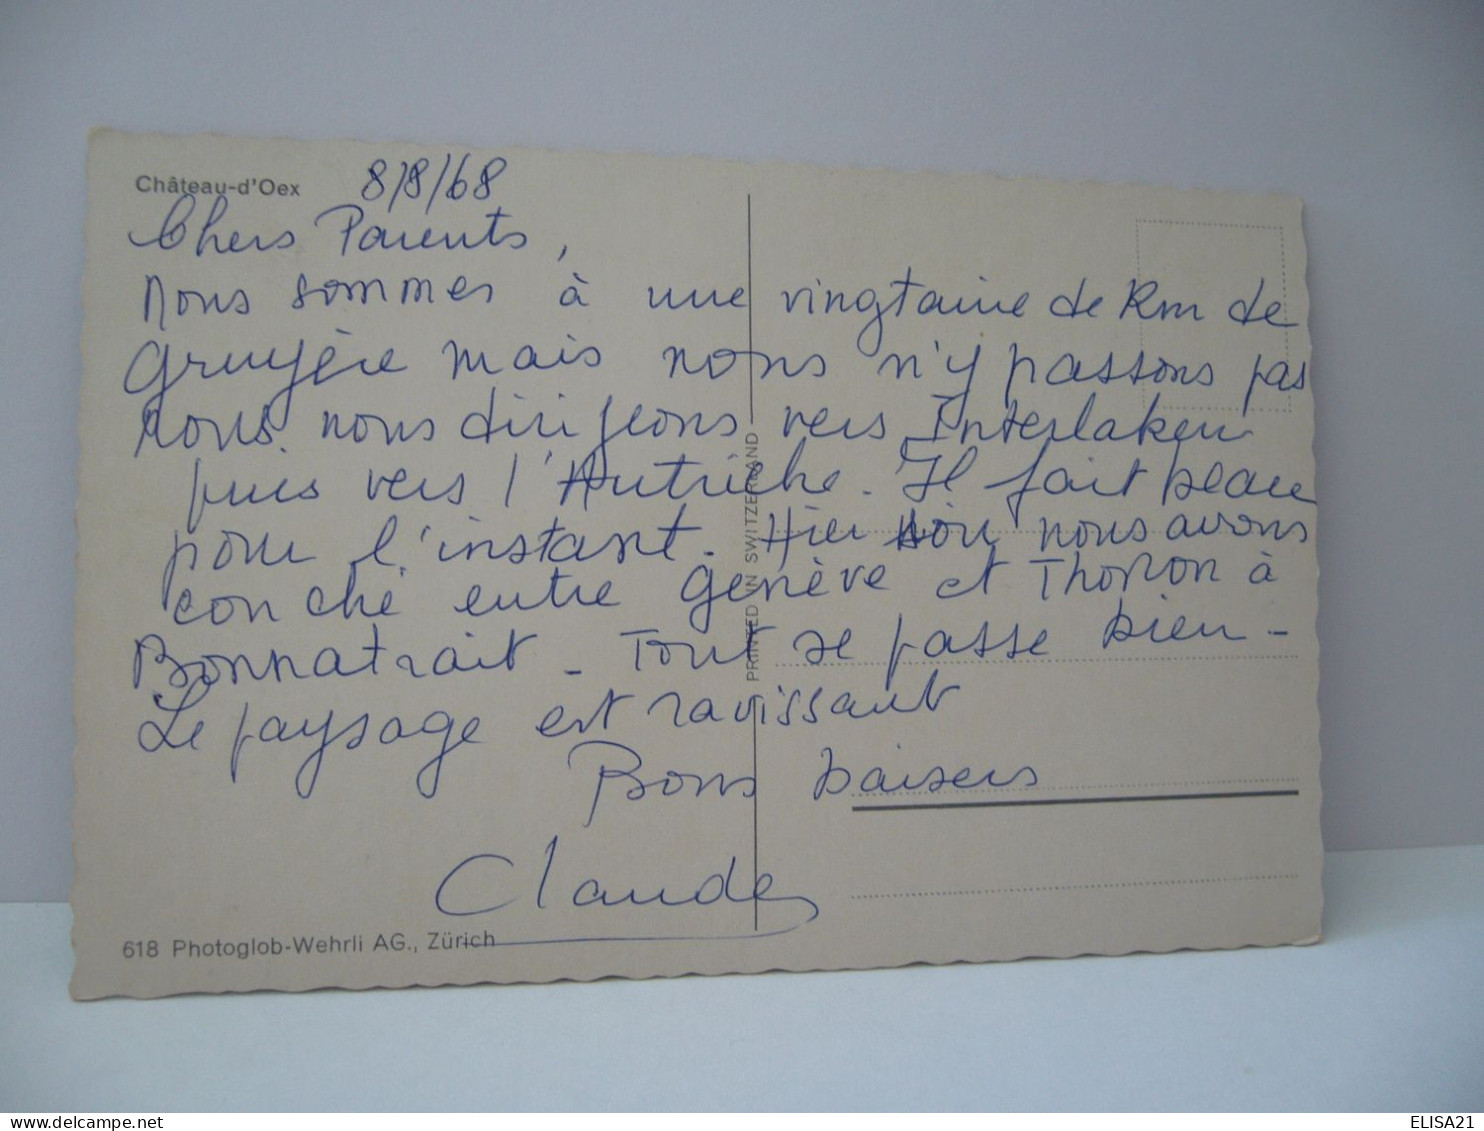 Château-d'Oex 8/8/68
Chers Parents,
Nous sommes à une vingtaine de Km de
gruyère mais nous n'y passons pas
nous nous dirigeons vers Interlaken
puis vers l'Autriche. Il fait beau
pour l'instant. Hier soir nous avons
couché entre Genève et Thonon à
Bonnatrait - Tout se passe bien -
Le paysage est ravissant
Bons baisers
Claude
618 Photoglob-Wehrli AG., Zürich
PRINTED IN SWITZERLAND
ELISA21